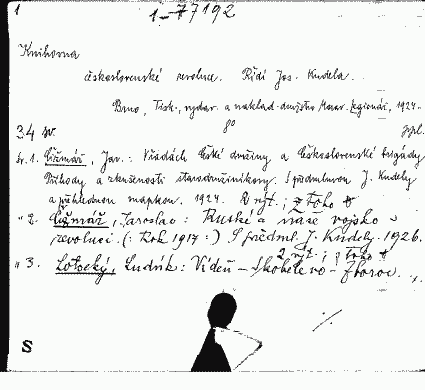 1
1-77192
Knihovna
československé revoluce. Řídí Jos. Kudela.
Brno, Tisk., vydav. a naklad. družstvo Morav. legionář, 1924-
8°
34 sv.
sv. 1. Čižmář, Jar.: V řadách České družiny a Československé brigády
Příhody a zkušenosti starodružiníkovy. S předmluvou J. Kudely
a přehlednou mapkou. 1924. 2 výt.; z toho
" 2. Čižmář, Jaroslav: Ruské a naše vojsko v
revoluci. (: Rok 1917 :) S předml. J. Kudely. 1926.
2 výt.; z toho
" 3. Lotocký, Ludvík: Vídeň - Skobelevo - Zborov.
S